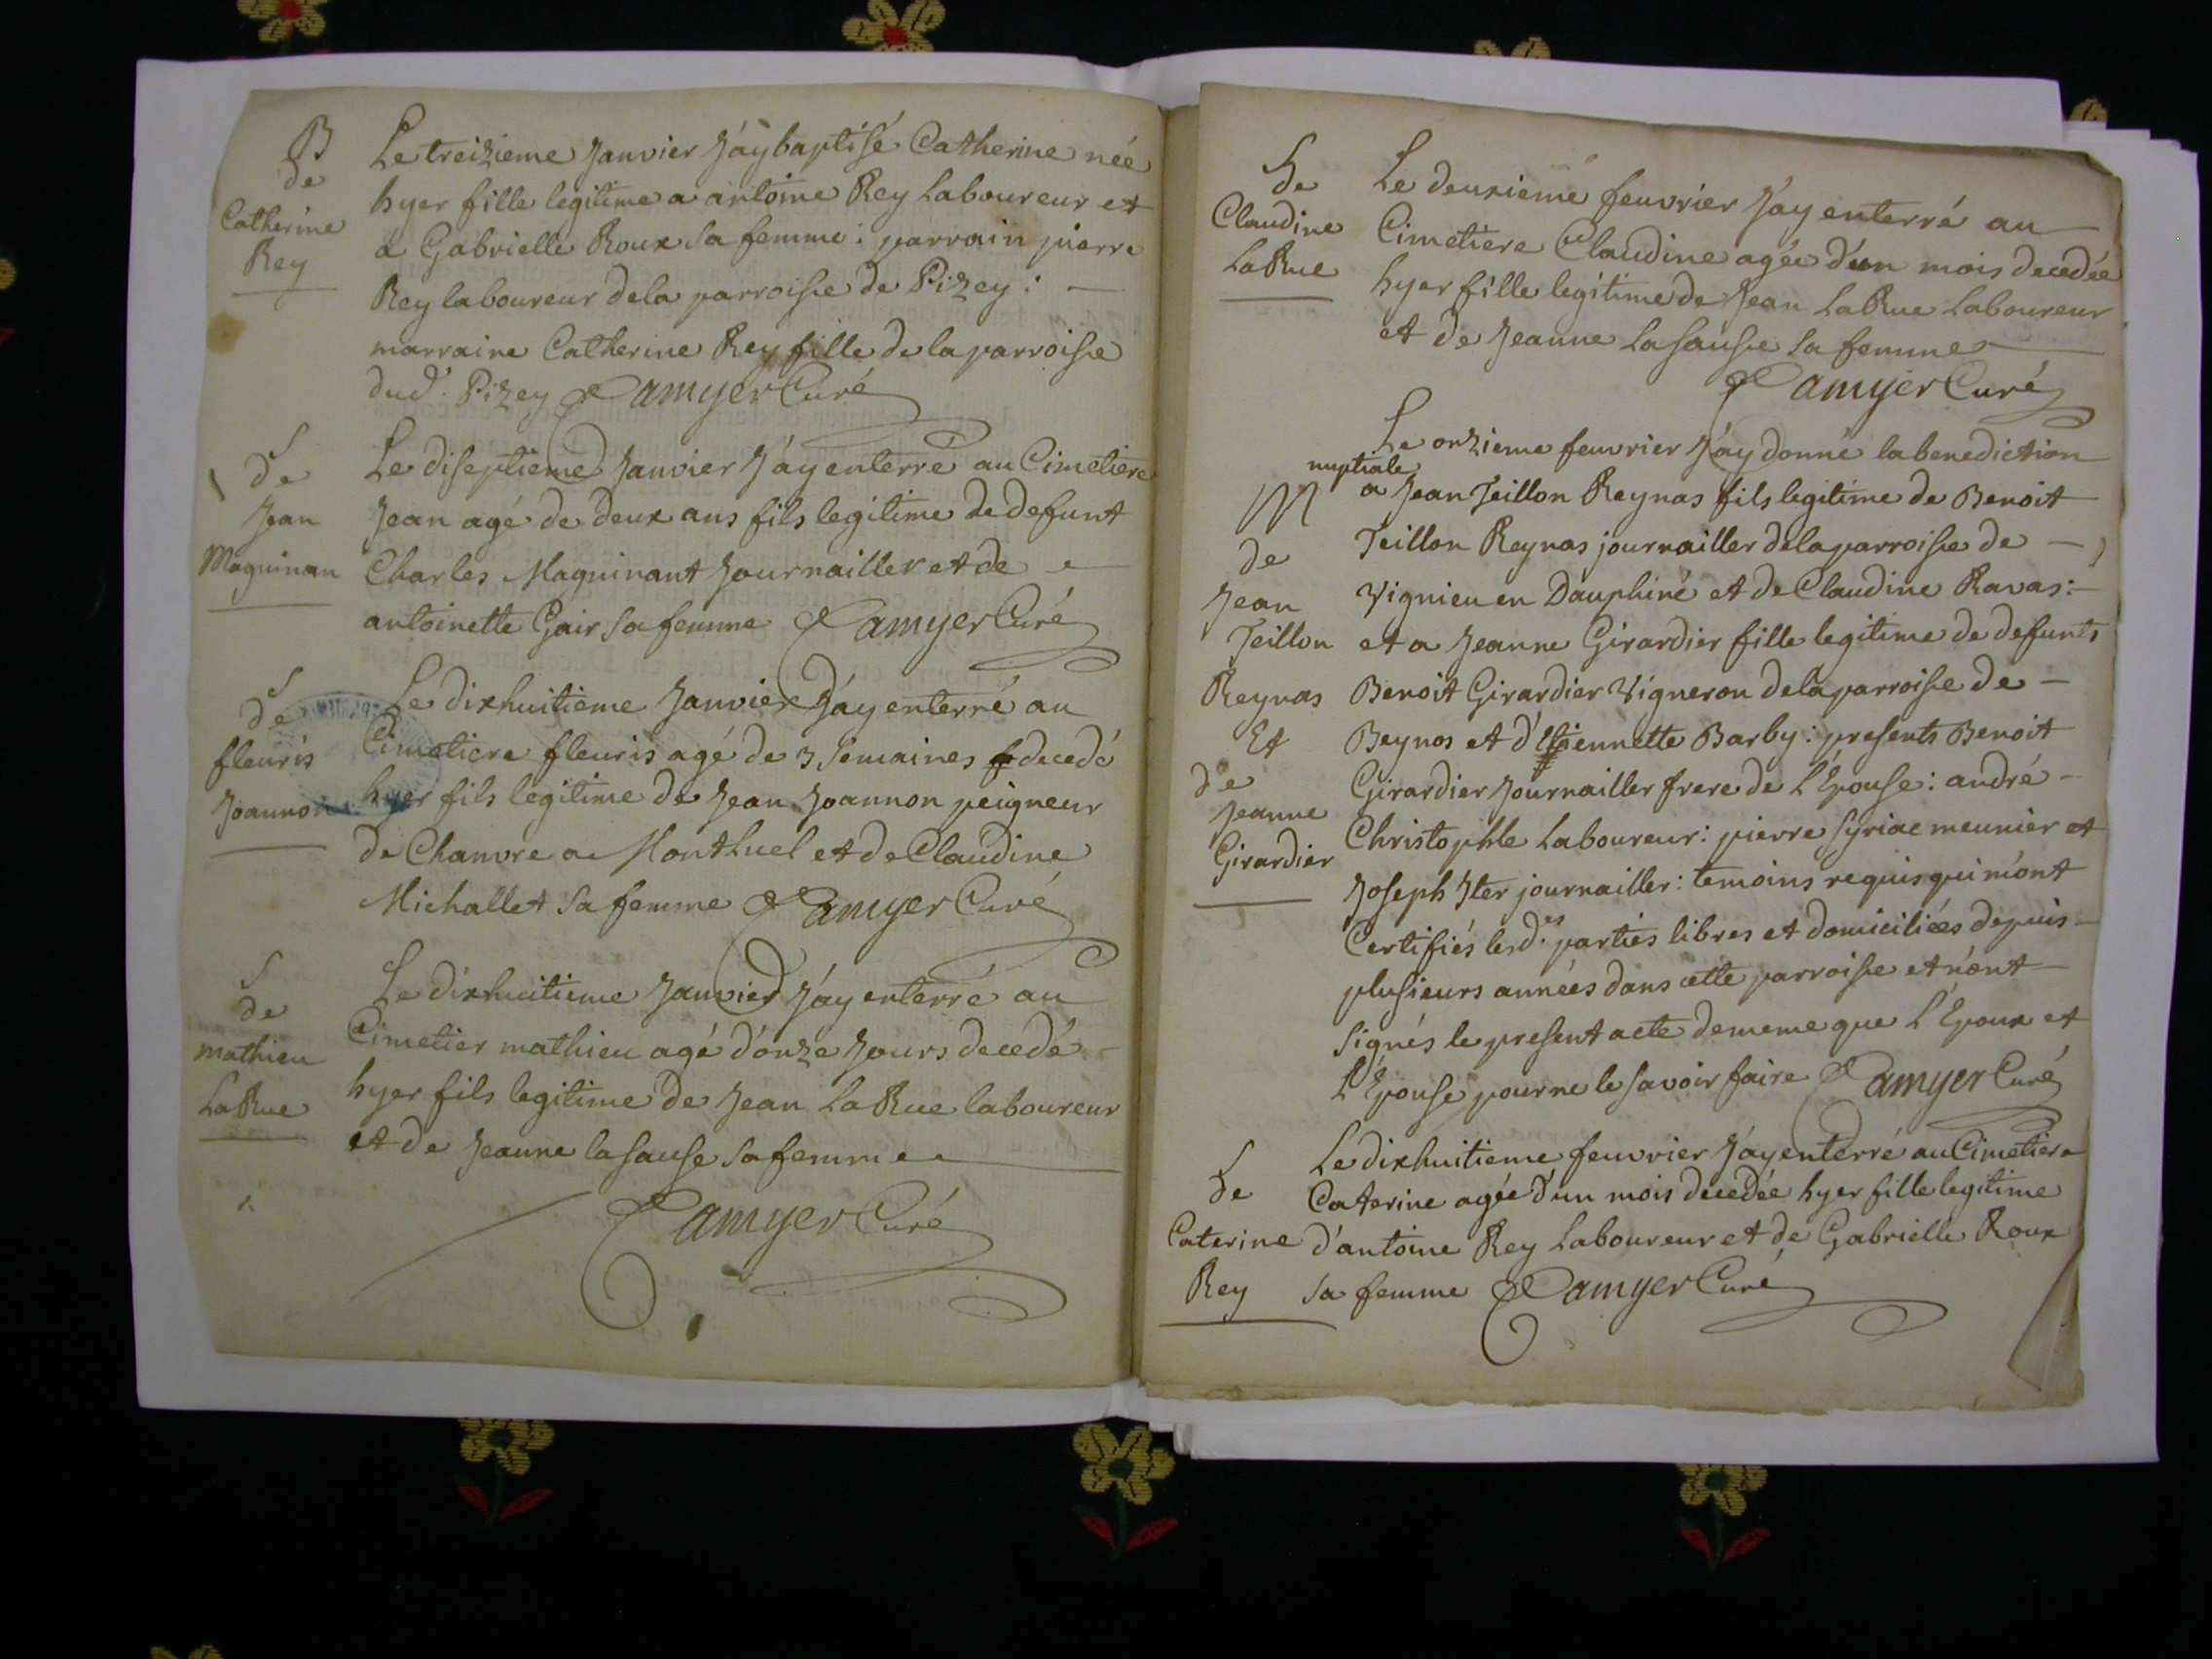 B
de
Catherine
Rey
Le treizieme Janvier J'ay baptisé Catherine née
hyer fille legitime a antoine Rey Laboureur et
a Gabrielle Roux sa femme : parrain pierre
Rey laboureur dela parroisse de Pizey : —
marraine Catherine Rey fille de la parroisse
dud. Pizey Camyer Curé
S
de
Jean
Maguinan
Le diseptieme Janvier J'ay enterré au Cimetiere
Jean agé de deux ans fils legitime de defunt
Charles Maguinant Journaillier et de —
antoinette Gair sa femme Camyer Curé
S
de
fleuris
Joannon
Le dixhuitieme Janvier J'ay enterré au
Cimetiere fleuris agé de 3 semaines decedé
hyer fils legitime de Jean Joannon peigneur
de Chanvre a Montluel et de Claudine
Michallet sa femme Camyer Curé
S
de
mathieu
LaRue
Le dixhuitieme Janvier J'ay enterré au
Cimetier mathieu agé d'onze Jours decedé —
hyer fils legitime de Jean LaRue laboureur
et de Jeanne lasausse sa femme
Camyer Curé
S
de
Claudine
LaRue
Le deuxieme feuvrier J'ay enterré au
Cimetiere Claudine agée d'un mois decedée
hyer fille legitime de Jean LaRue Laboureur
et de Jeanne Lasausse sa femme —
Camyer Curé
M
de
Jean
Teillon
Reynas
Et
de
Jeanne
Girardier
Le onzieme feuvrier J'ay donné la benediction
nuptiale a Jean Teillon Reynas fils legitime de Benoit
Teillon Reynas journaillier dela parroisse de —
Vignieu en Dauphiné et de Claudine Ravas : —
et a Jeanne Girardier fille legitime de defunts
Benoit Girardier Vigneron dela parroisse de —
Beynos et d'Etiennette Barby : presents Benoit
Girardier Journaillier frere de L'Epouse : andré —
Christophle Laboureur : pierre Syriac meunier et
Joseph Iter journaillier : temoins requis qui m'ont
Certifiés lesd.es parties libres et domiciliées depuis —
plusieurs années dans cette parroisse et n'ont —
signés le present acte de meme que L'Epoux et
L'Epouse pour ne le savoir faire Camyer Curé
S
de
Caterine
Rey
Le dixhuitieme feuvrier J'ay enterré au Cimetiere
Caterine agée d'un mois decedée hyer fille legitime
d'antoine Rey Laboureur et de Gabrielle Roux
sa femme Camyer Curé